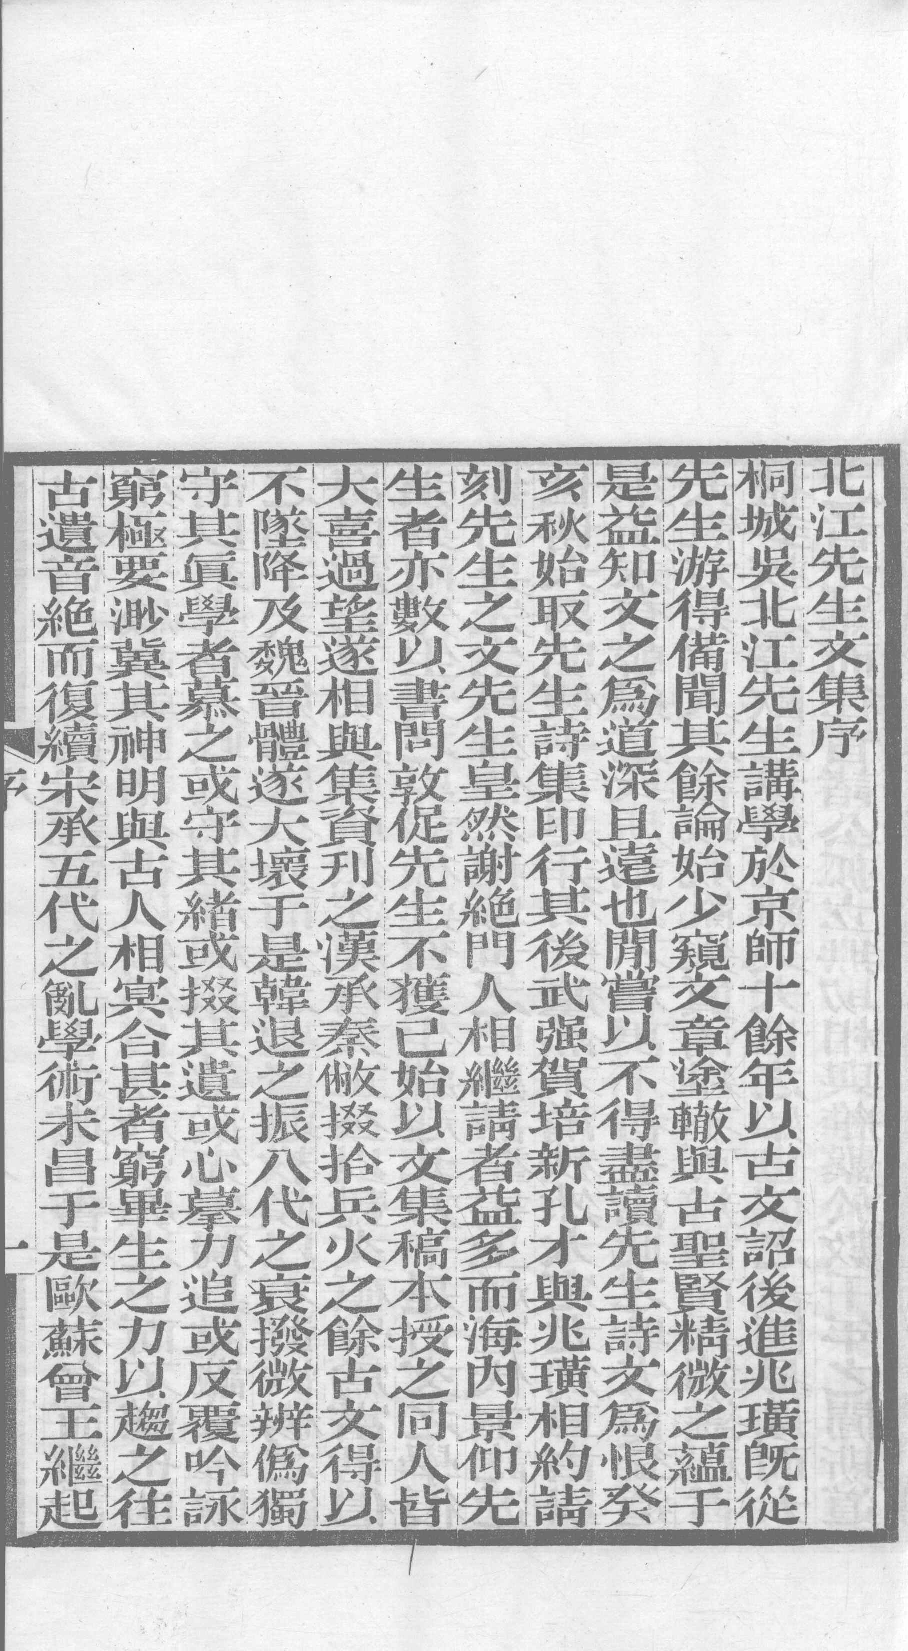 北江先生文集序
桐城吳北江先生講學於京師十餘年以古文詔後進兆璜旣從
先生游得備聞其餘論始少窺文章塗轍與古聖賢精微之蘊于
是益知文之爲道深且遠也閒嘗以不得盡讀先生詩文爲恨癸
亥秋始取先生詩集印行其後武强賀培新孔才與兆璜相約請
刻先生之文先生皇然謝絶門人相繼請者益多而海內景仰先
生者亦數以書問敦促先生不獲已始以文集稿本授之同人皆
大喜過望遂相與集資刊之漢承秦敝掇拾兵火之餘古文得以
不墜降及魏晉體遂大壞于是韓退之振八代之衰撥微辨僞獨
守其眞學者慕之或守其緒或掇其遺或心摹力追或反覆吟詠
窮極要渺冀其神明與古人相冥合甚者窮畢生之力以趨之往
古遺音絶而復續宋承五代之亂學術未昌于是歐蘇曾王繼起
序
一